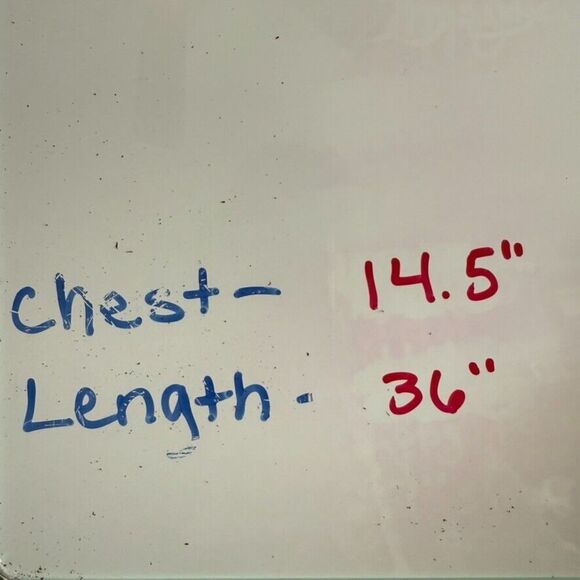 Chest- 14.5"
Length- 36"